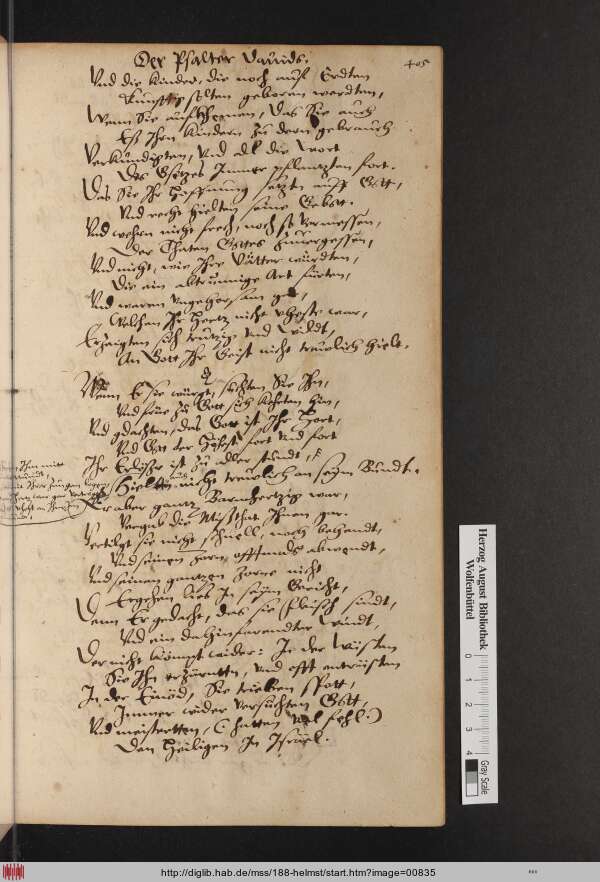 Der Psalter Dauids.
405
Vnd die Kinder, die noch auf Erdten
Kunfftig solten geboren werdten,
Wenn Sie aufkhemen, das Sie auch
Eß Ihrn Kindern zu dem gebrauch
Verkundigten, Vnd all die Wort
Des Gsetzes Immer pflantzten fort.
Das Sie Ihr Hoffnung setztn auff Gott,
Vnd recht hielten seine Gebott.
Vnd wehrn nicht frech, noch so vermessen,
Der Thaten Gottes Zuuergessen,
Vnd nicht, wie Ihre Vätter würdten,
Die ein abtrunnige Art fürten,
Vnd waren Vngehorsam gar,
Welchen Ihr Hertz nicht veste war,
Erzaigten sich trutzig Vnd Wildt,
An Gott Ihr Geist nicht treulich hielt.
Wann Er sie würgt, suchten Sie Ihn,
Vnd frue zu Gott sich kehrten hin,
Vnd gdachten, das Gott ist Ihr Hort,
Vnd Gott der Höhest fort Vnd fort
Ihr Erlößer ist zu aller stundt,
Hieltn nicht treulich an seym Bundt.
Er aber gantz Barmhertzig war,
Vergab die Missthat Ihnen gar.
Vertilgt sie nicht schnell, noch behendt,
Vnd seinen Zorn offtmals abwendt,
Vnd seinen gantzen Zorne nicht
Ergehen lies In seym Gericht,
Denn Er gedacht, das sie fleisch sindt,
Vnd ein dahinfarendter Windt,
Der nicht kömpt wider: In der Wüsten
Sie Ihn erzürntten, vnd offt entrüsten
In der Einöd, Sie trieben spott,
Immer wider versuchten Gott,
Vnd meistertten, (hatten viel fehl:)
Den Heiligen In Israel.
Herzog August Bibliothek
Wolfenbüttel
0 1 2 3 4
Gray Scale
http://diglib.hab.de/mss/188-helmst/start.htm?image=00835